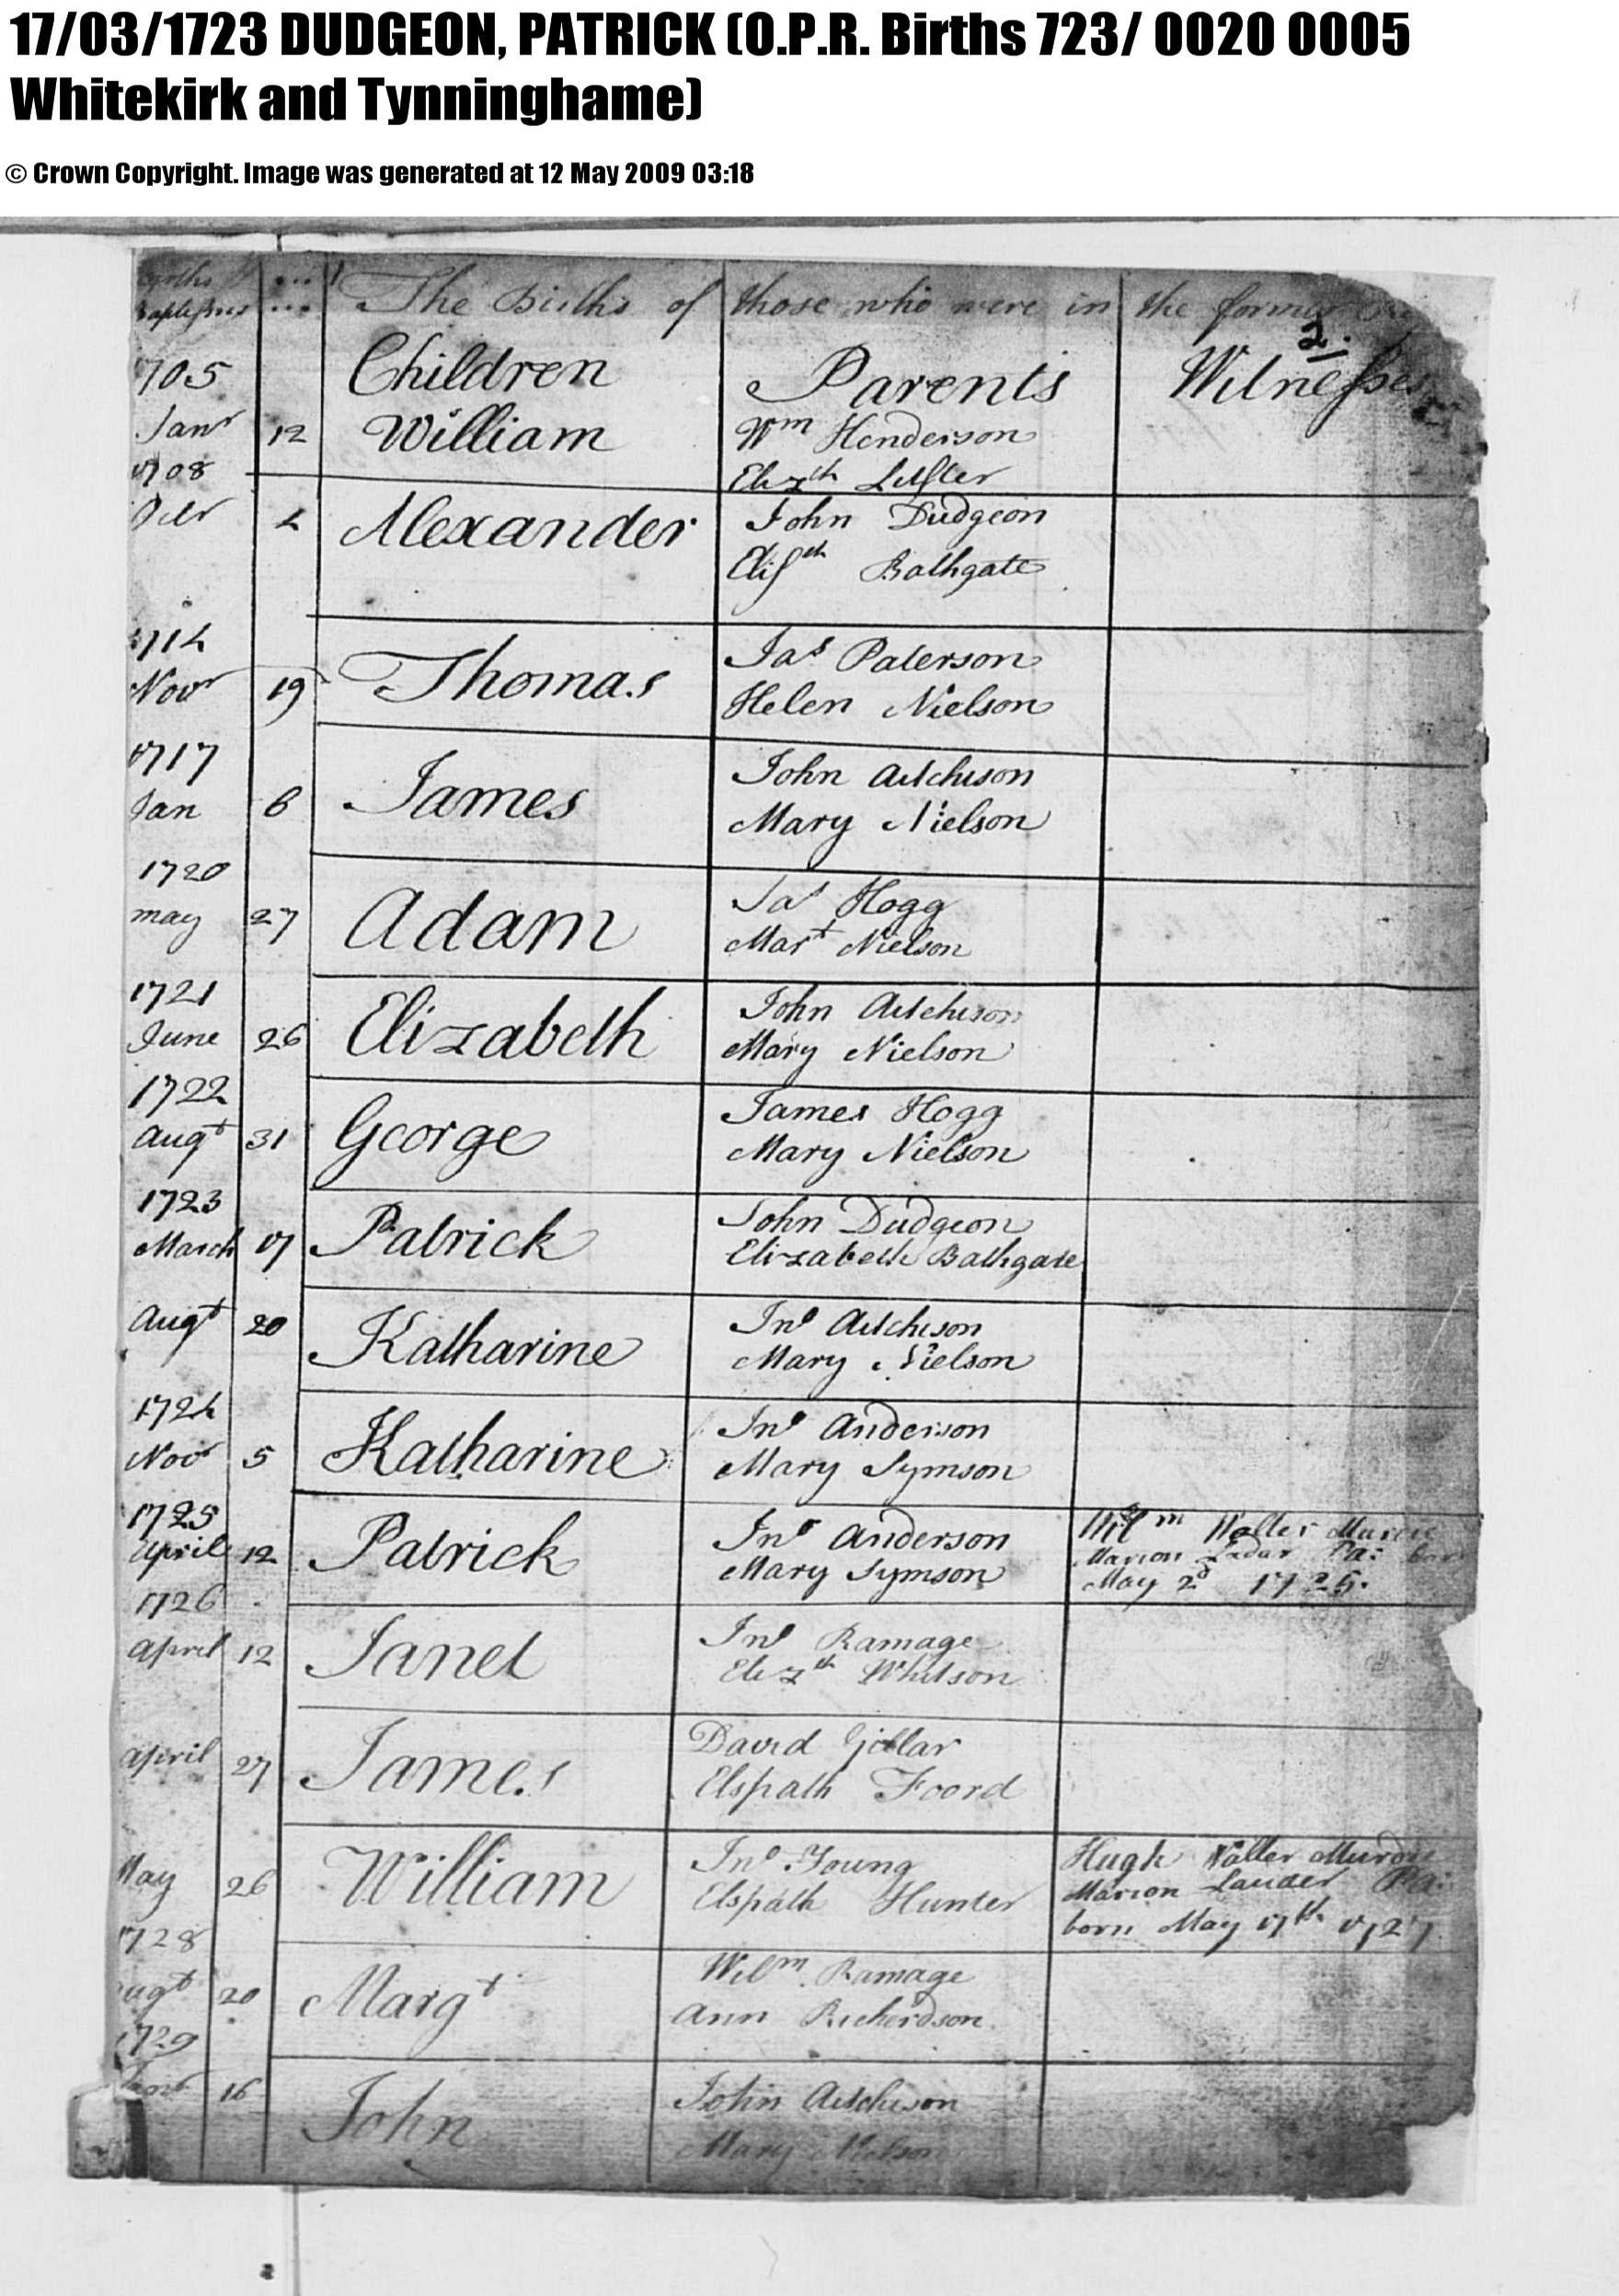 17/03/1723 DUDGEON, PATRICK (O.P.R. Births 723/ 0020 0005
Whitekirk and Tynninghame)
© Crown Copyright. Image was generated at 12 May 2009 03:18
The Births of those who were in the former
2.
1705 Children Parents Witnesses
Janr 12 William Wm Henderson
1708 Elizth
4 Alexander John Dudgeon
Elisth Bathgate
1714
Novr 19 Thomas Jas Paterson
Helen Nielson
1717
Jan 6 James John Aitchison
Mary Nielson
1720
may 27 Adam Jas Hogg
Mart Nielson
1721
June 26 Elizabeth John Aitchison
Mary Nielson
1722
Augt 31 George James Hogg
Mary Nielson
1723
March 17 Patrick John Dudgeon
Elizabeth Bathgate
Augt 20 Katharine Jno Aitchison
Mary Nielson
1724
Novr 5 Katharine Jno Anderson
Mary Symson
1725
April 12 Patrick Jno Anderson Wilm Waller
Mary Symson Marion Pa:
May 2d 1725.
1726
April 12 Janet Jno Ramage
Elizth Whitson
April 27 James David
Elspath Foord
May 26 William Jno Young Hugh Waller
Elspath Hunter Marion Lauder Pa:
born May 17th 1727
1728
Augt 20 Margt Wilm Ramage
Ann Richerdson
1729
16 John John Aitchison
Mary Nielson